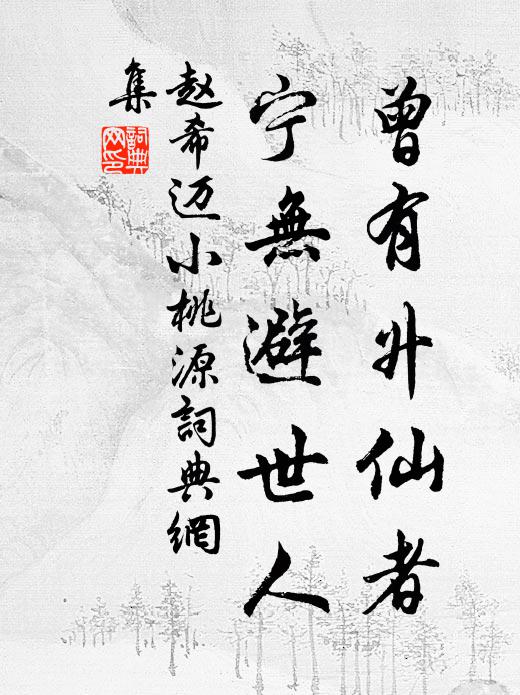 曾有升仙者
宁無避世人
赵希迈小桃源詞典網
集
詞典網印